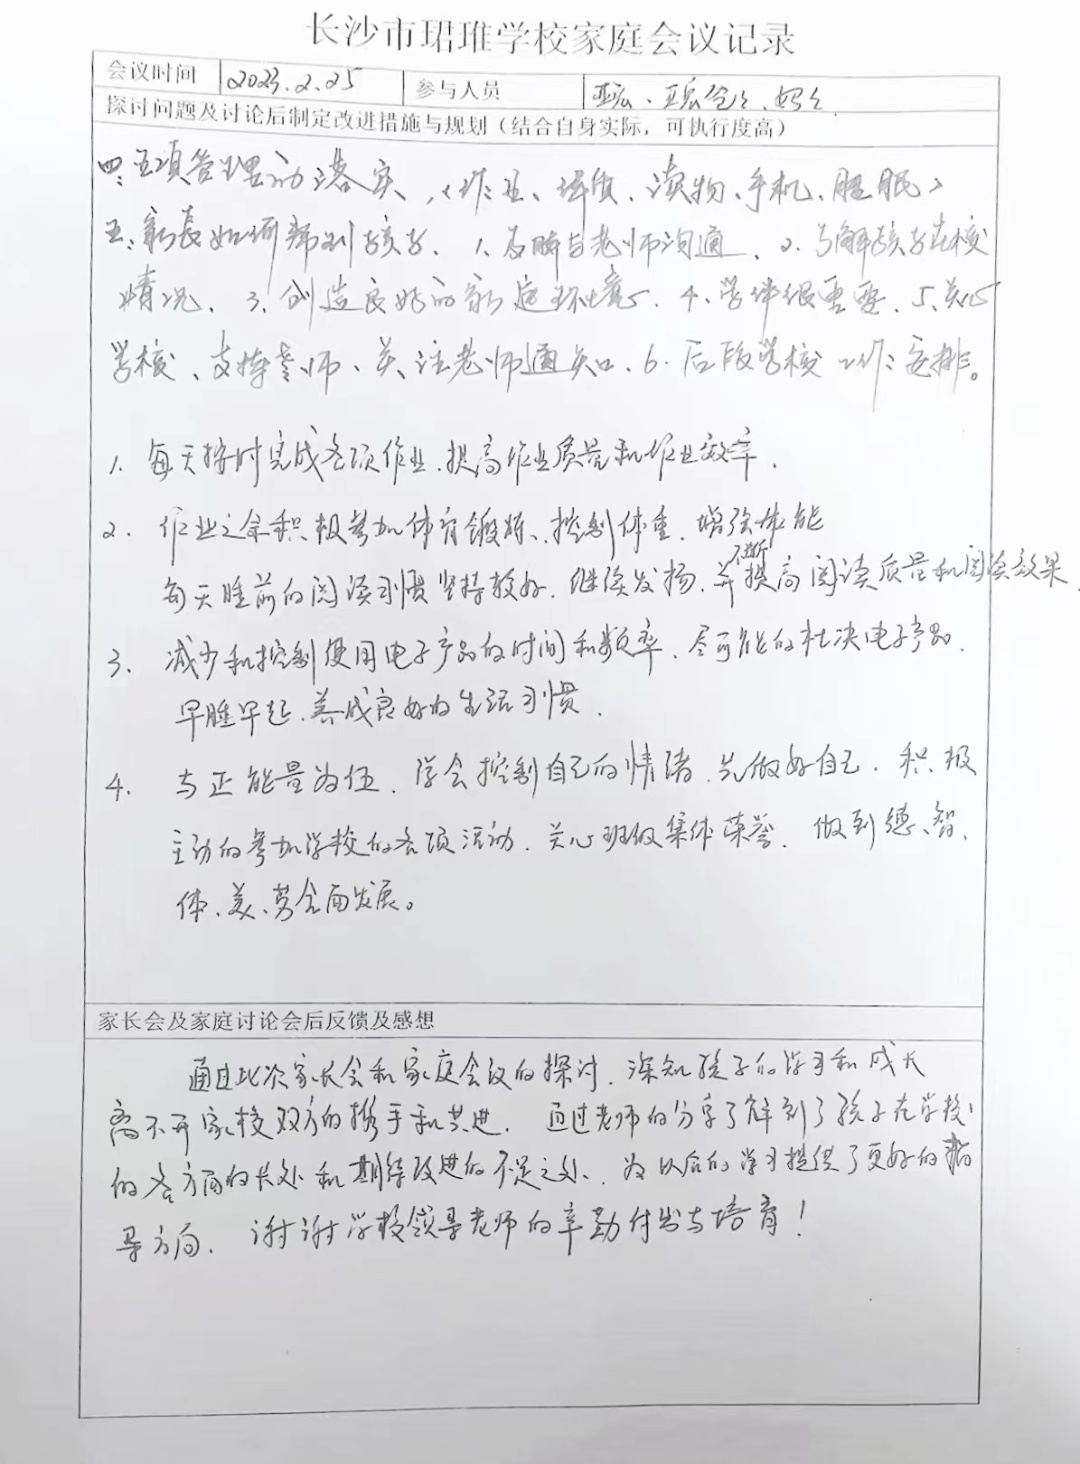 长沙市珺琟学校家庭会议记录
会议时间 2023.2.25 参与人员 、妈妈
探讨问题及讨论后制定改进措施与规划（结合自身实际，可执行度高）
四、五项管理的落实、（作业、体质、读物、手机、睡眠）
五、家长如何帮到孩子、1、及时与老师沟通、2、了解孩子在校
情况、3、创造良好的家庭环境、4、学伴很重要、5、关心
学校、支持老师、关注老师通知、6、后段学校工作安排。
1、每天按时完成各项作业、提高作业质量和作业效率、
2、作业之余积极参加体育锻炼、控制体重、增强体能
每天睡前的阅读习惯坚持较好、继续发扬、并不断提高阅读质量和阅读效果、
3、减少和控制使用电子产品的时间和频率、尽可能的杜决电子产品、
早睡早起、养成良好的生活习惯、
4、与正能量为伍、学会控制自己的情绪、先做好自己、积极
主动的参加学校的各项活动、关心班级集体荣誉、做到德、智、
体、美、劳全面发展。
家长会及家庭讨论会后反馈及感想
通过此次家长会和家庭会议的探讨、深知孩子的学习和成长
离不开家校双方的携手和共进、通过老师的分享了解到了孩子在学校
的各方面的长处和期待改进的不足之处、为以后的学习提供了更好的指
导方向、谢谢学校领导老师的辛勤付出与培育！